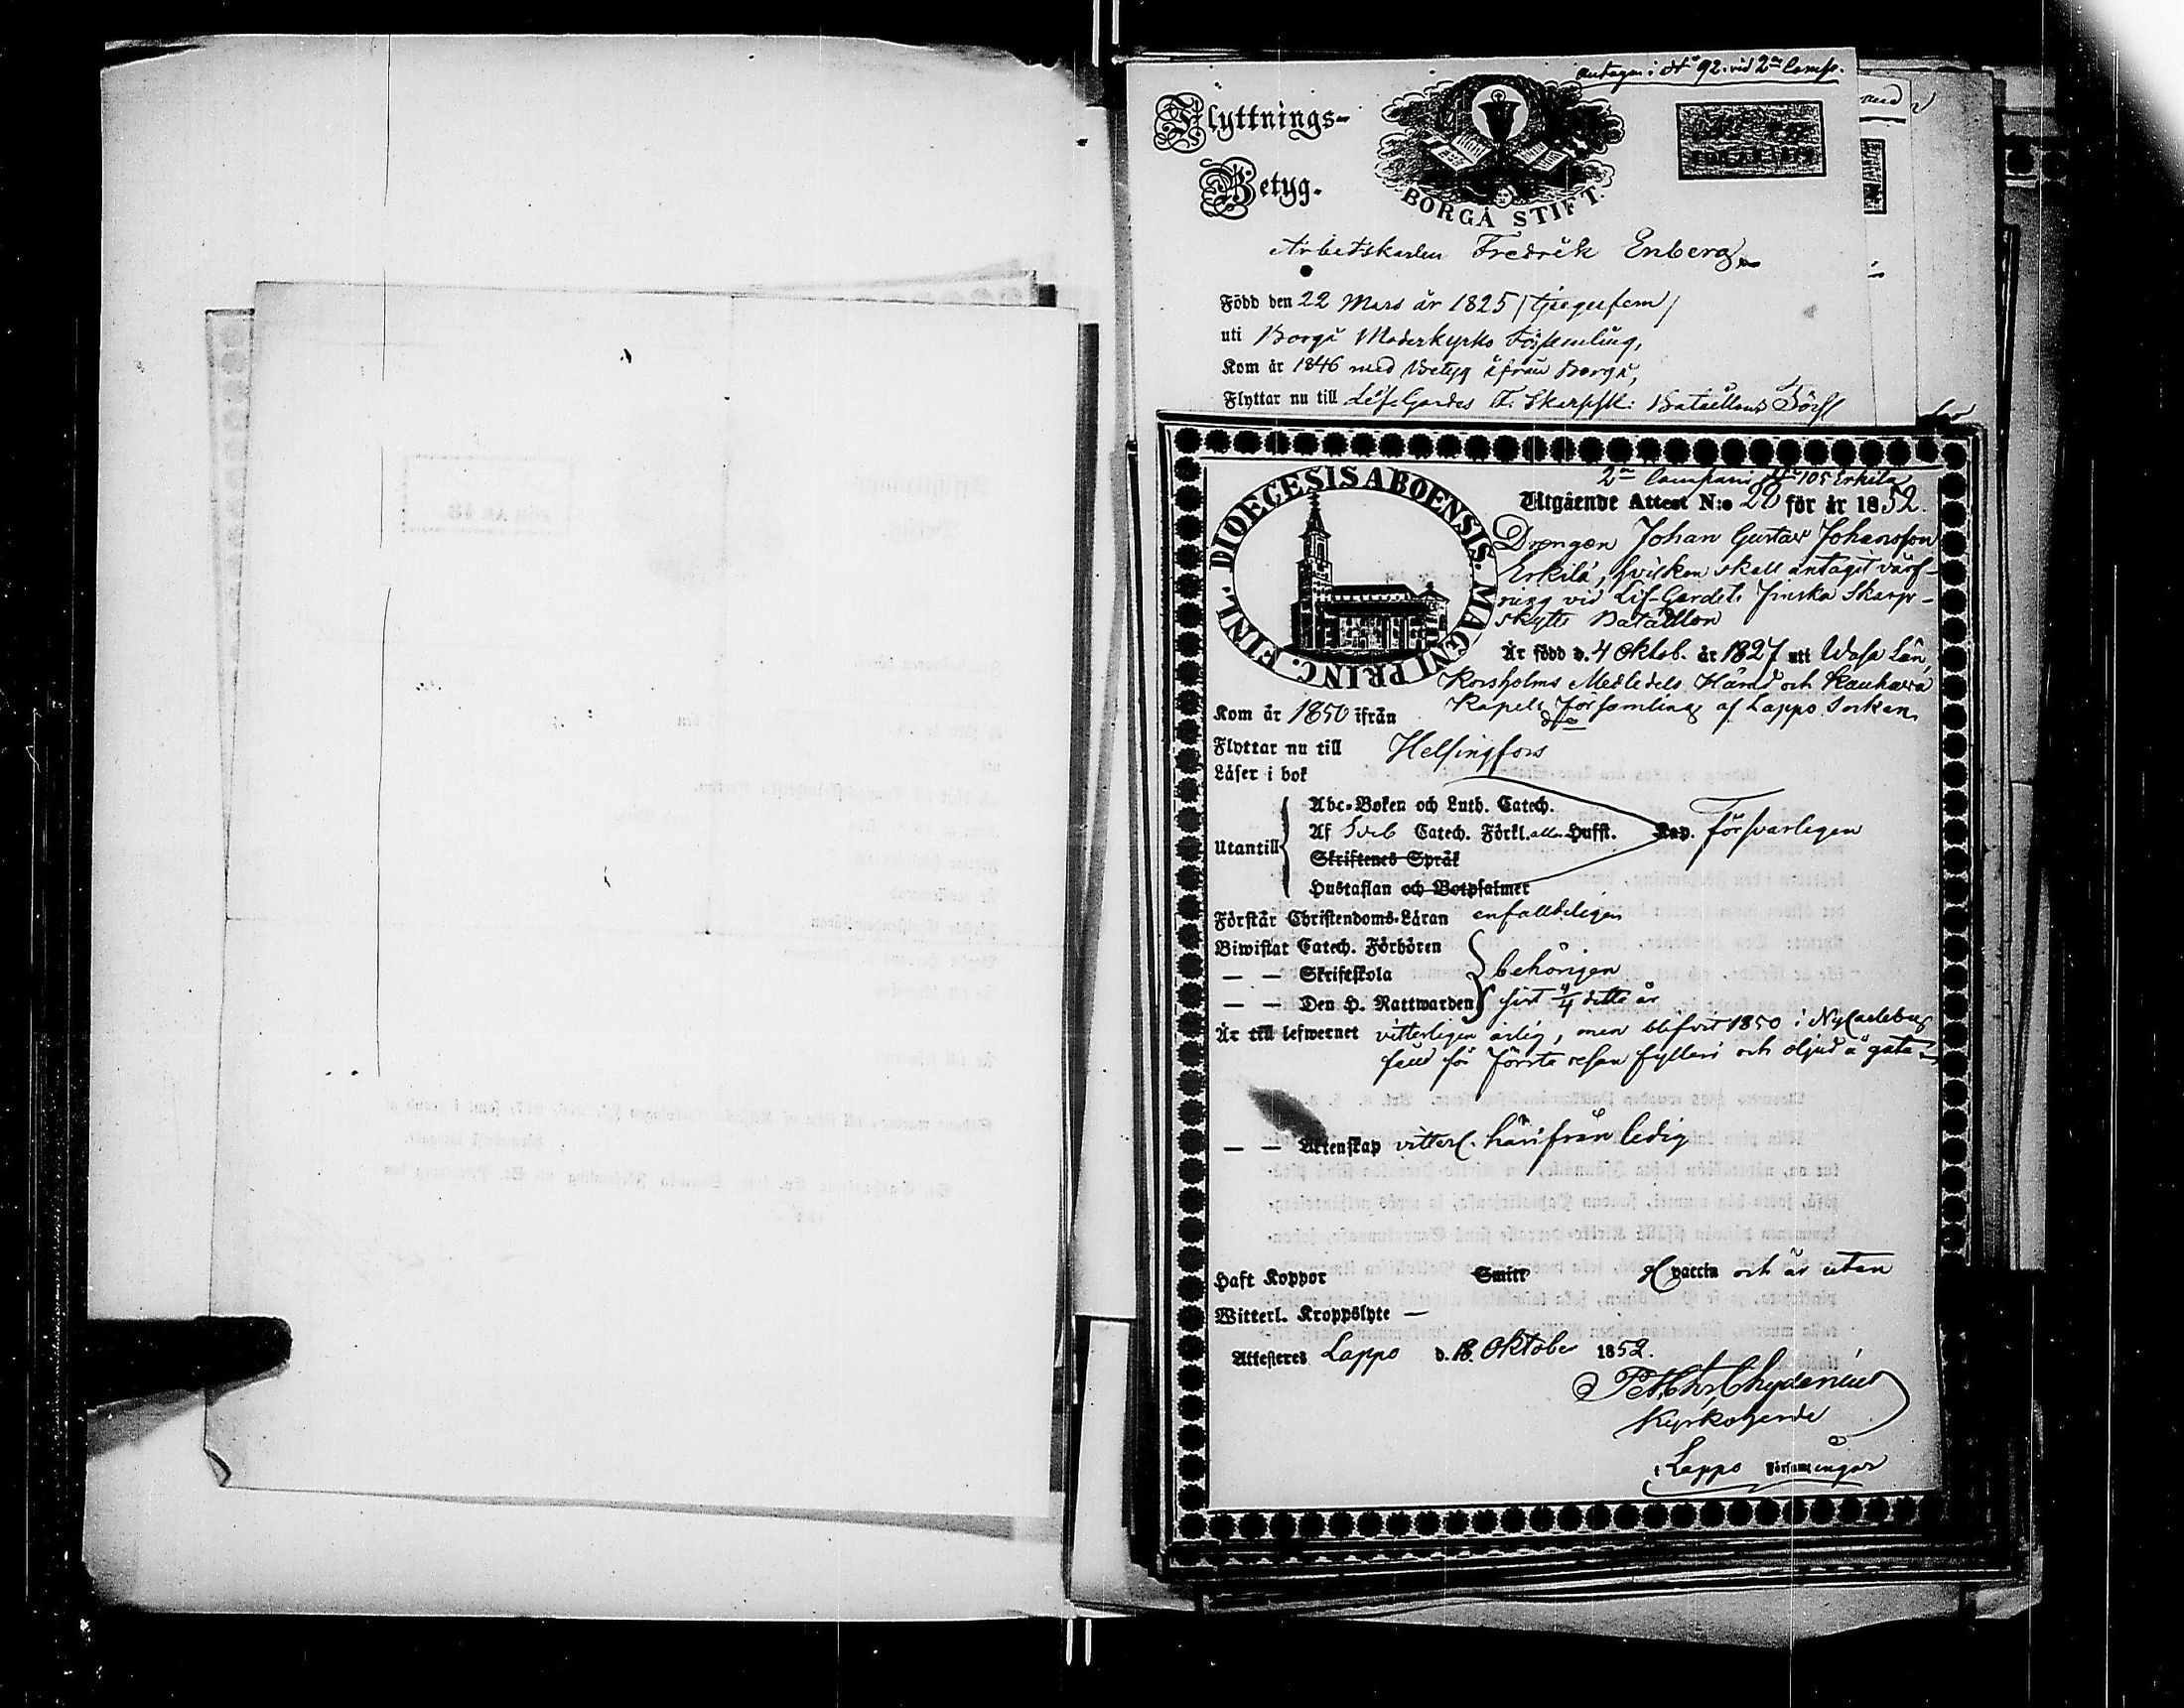 antagen i No 92. vid 2ra Comp.
Flyttnings-
Betyg.
BORGÅ STIFT.
Arbetskarlen Fredrik Enberg
Född den 22 Mars år 1825 /tjugufem/
uti Borgå Moderkyrko Församling,
Kom år 1846 med Betyg ifrån Borgå,
Flyttar nu till Lif-Gardes F. Skarpsk: Bataillons Förs
DIOECESIS ABOENSIS. MAGNI PRINC. FINL.
2ra Compani No 105 Erkila
Utgående Attest N:o 20 för år 1852.
Drengen Johan Gustav Johansson
Erkilä, hvilken skall antagit värf-
ning vid Lif-Gardets Finska Skarp-
skytte Bataillon
Är född d. 4 Oktob. år 1827 uti Wasa Län,
Korsholms Medledels Härad och Kauhava
Kapell Församling af Lappo Sockan
Kom år 1850 ifrån do
Flyttar nu till Helsingfors
Läser i bok
Utantill
Abc-Boken och Luth. Catech.
Af Sveb Catech. Förkl. alla Hufst. Kap. försvarligen
Skriftenes Språk
Hustaflan och Botpsalmer
Förstår Christendoms-Läran enfalldeligen
Biwistat Catech. Förhören
— — Skriftskola behörigen
— — Den H. Nattwarden sist 4/4 detta år
Är till lefwernet vitterligen ärlig, men blifvit 1850 i NyCarleby
fäld för första resan fylleri och oljud å gata
— — Äktenskap vitterl. härifrån ledig
Haft Koppor Smitt vaccin och är utan
Witterl. Kroppslyte —
Attesteras Lappo d. 18. Oktober 1852.
Chydenius
Kyrkoherde
i Lappo Församlingar